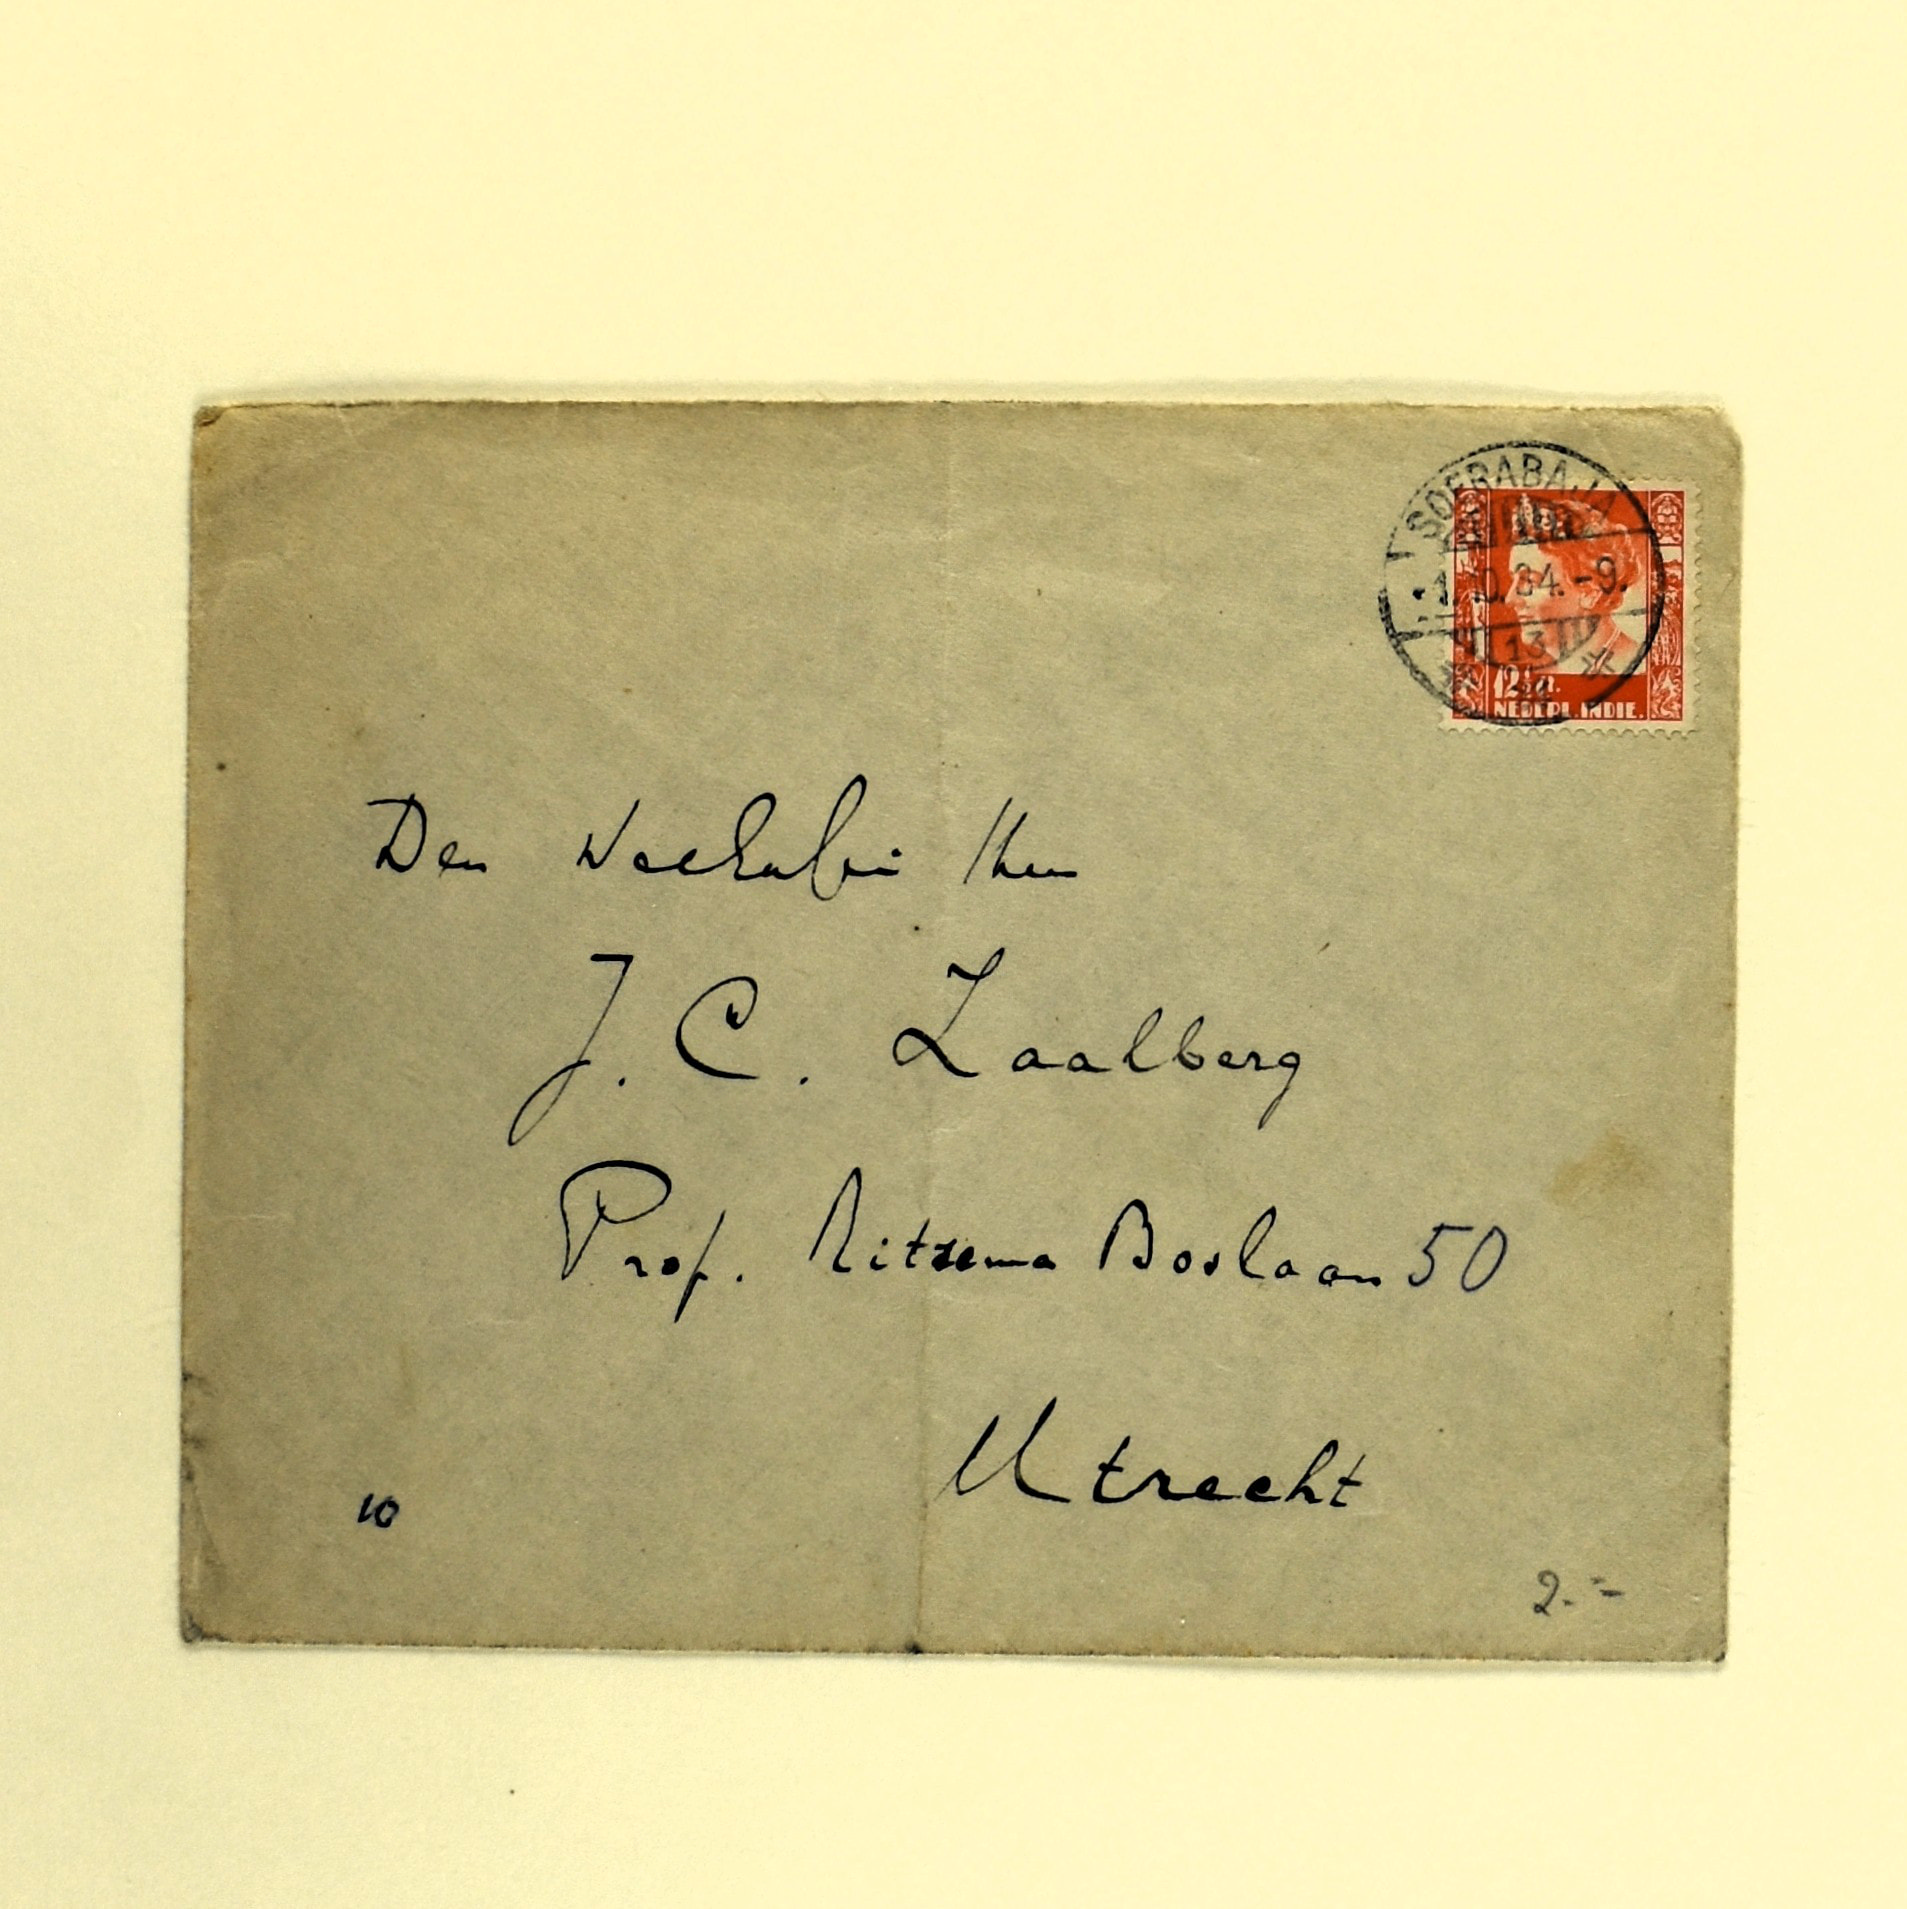 SOERABAJA
1.10.34.-9.
13
12½ CT.
NEDERL. INDIE.
Den Weledelen Heer
J. C. Zaalberg
Prof. Ritzema Boslaan 50
Utrecht
10
2.=